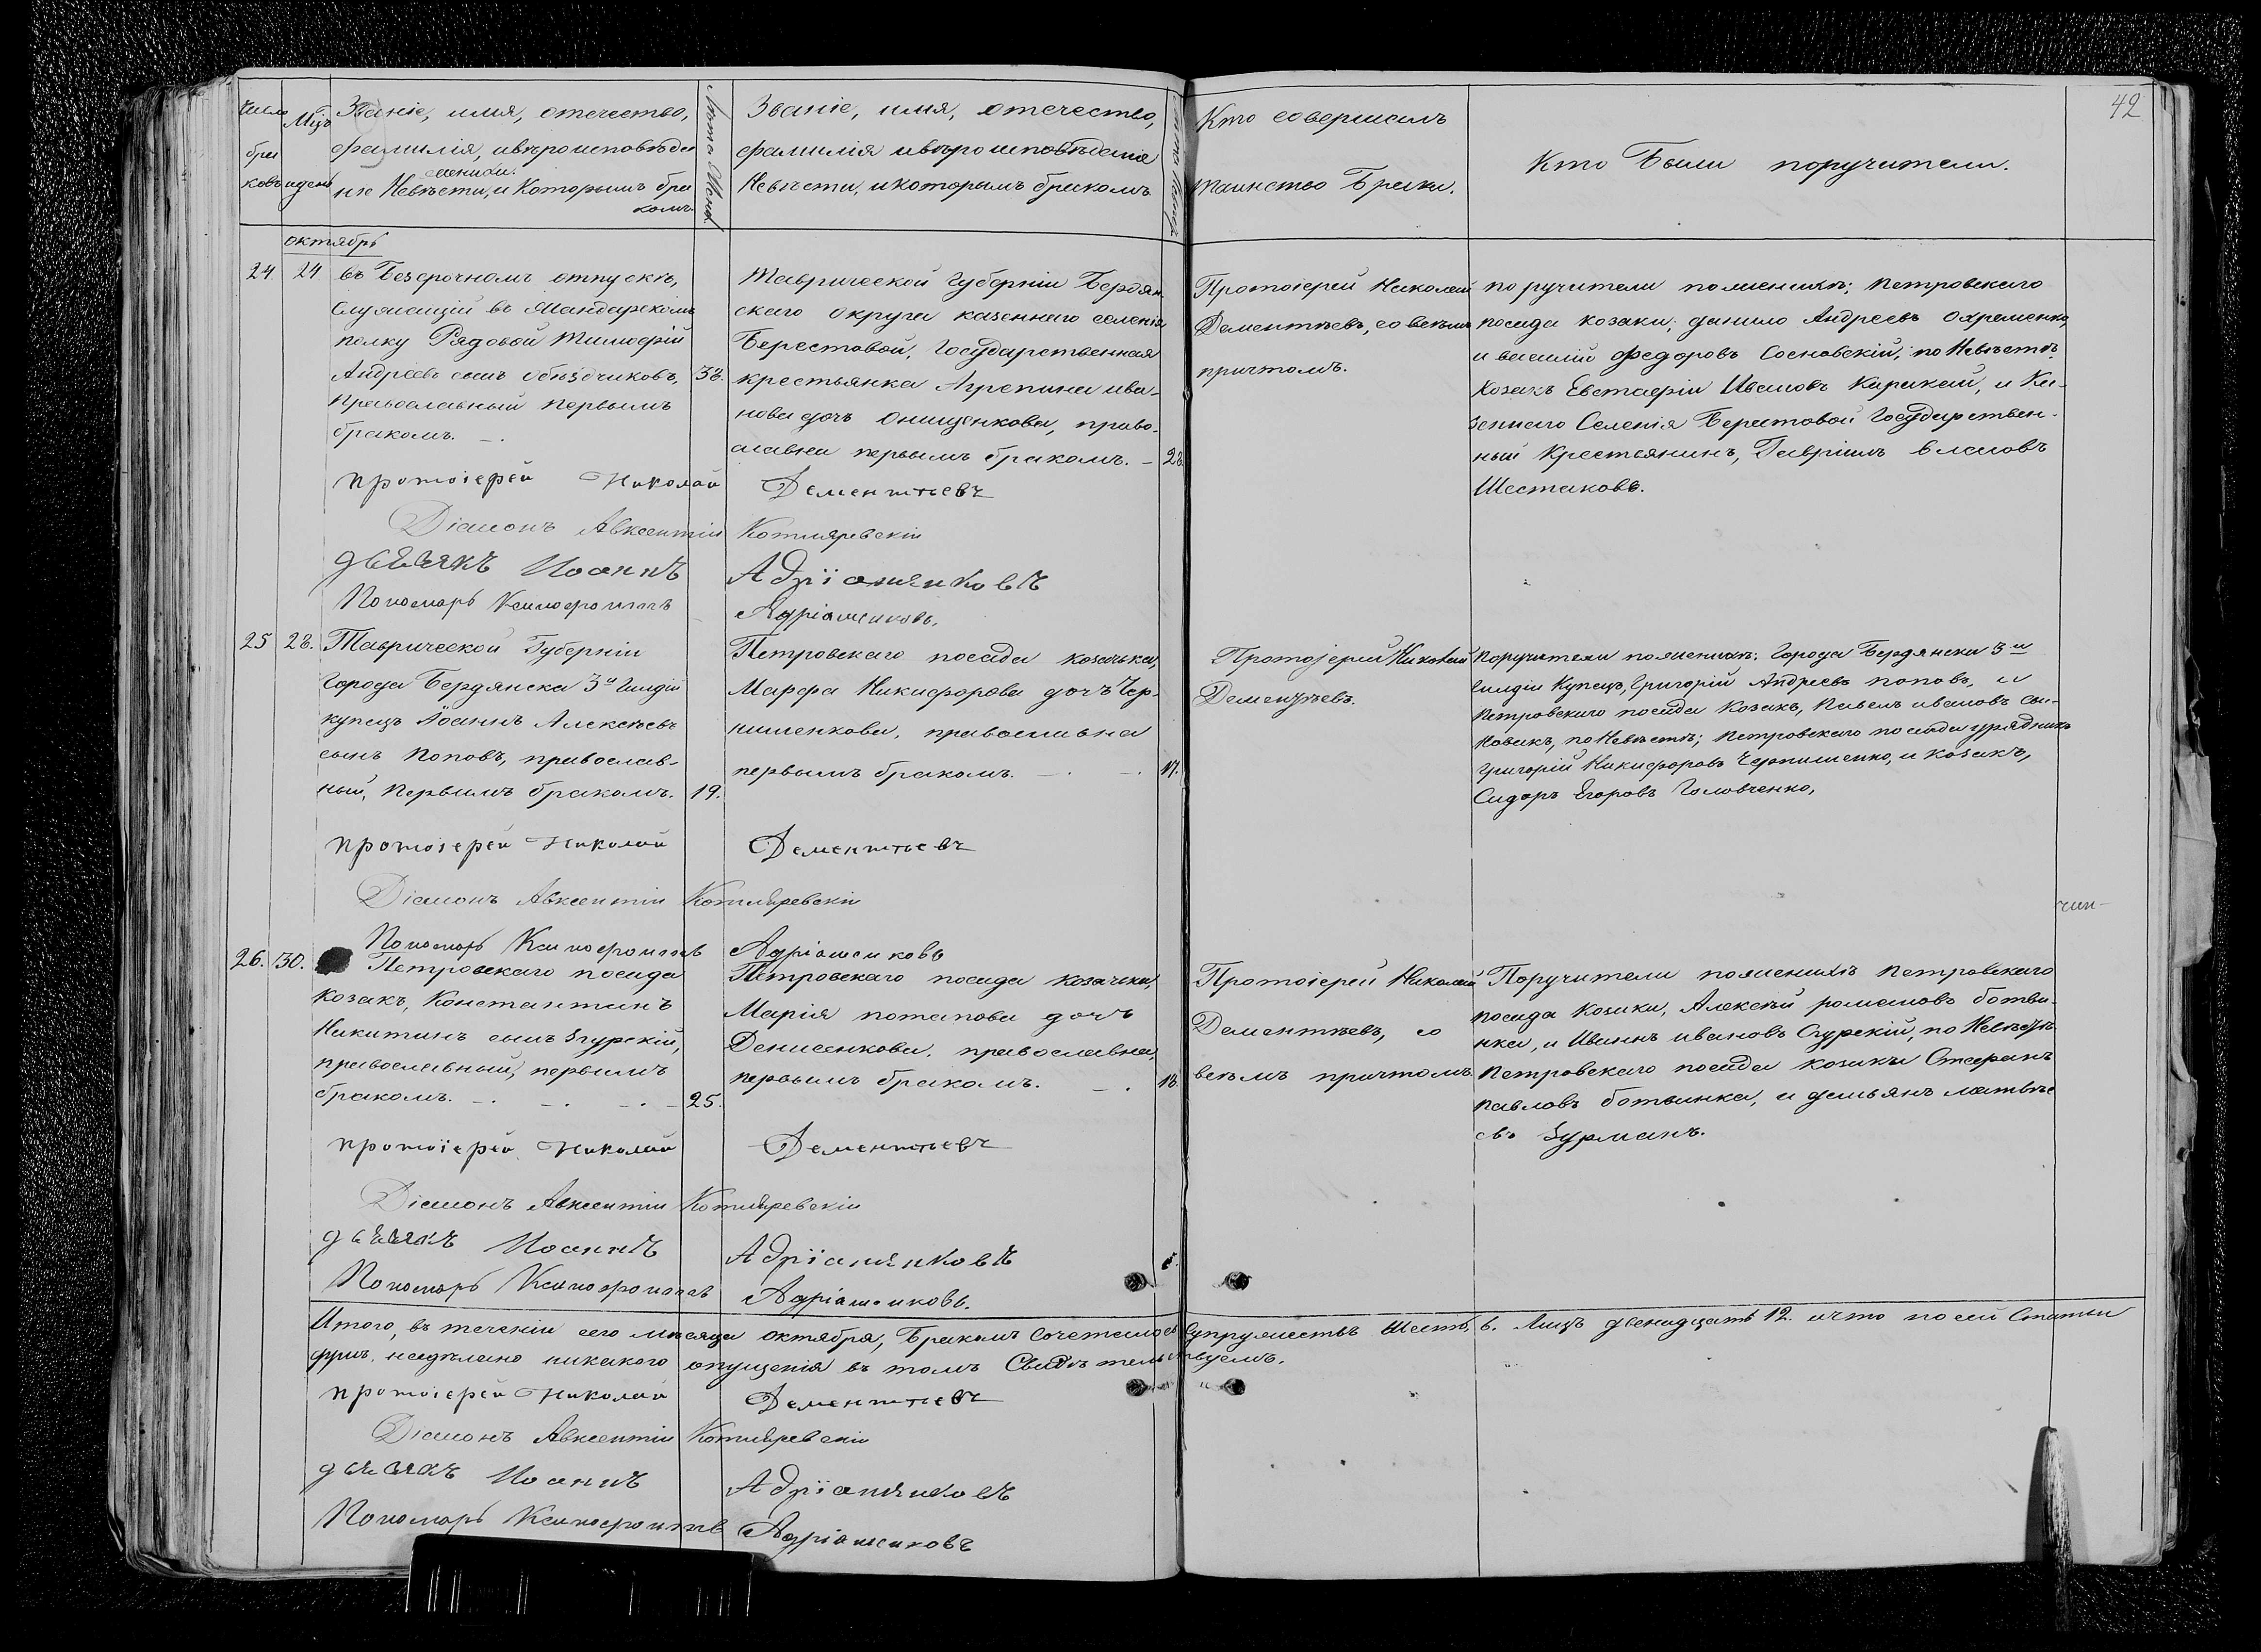 42
Число браковъ
Мѣсъ и день
Званіе, имя, отечество,
фамилія, и вѣроисповѣда
жениха.
ніе Невѣсти, и Которымъ бра
комъ
Лѣта Жених
Званіе, имя, отечество,
фамилія и вѣроисповѣданіе
Невѣсти, и которымъ бракомъ
Кто совершилъ
таинство Брака.
Кто Были поручители.
октябрь
24. 24
въ Безсрочномъ отпускѣ,
Служащій въ Жандарскомъ
полку Рядовой Тимофій
Андреевъ сынъ Объѣзчиковъ, 38.
Православный первымъ
бракомъ. –.
Таврической Губерніи Бердян
скаго округа казеннаго селенія
Берестовой, Государственная
крестьянка Агрепина ива-
нова дочъ Онищенкова, право-
славна первымъ бракомъ. – 28.
Протоіерей Николай
Дементьевъ, со всѣмъ
причтомъ.
поручители по женихѣ; Петровскаго
посада козаки; данило Андреевъ Охременко,
и василій Федоровъ Сосновскій; по Невѣстѣ
Козакъ Евстафій Ивановъ Карикай, и Ка-
зеннаго Селенія Берестовой Государствен-
ный Крестьянинъ, Гавріилъ власовъ
Шестаковъ.
протоіерей Николай Дементьевъ
Діаконъ Авксентій Котляревскій
дьячокъ Иоаннъ Адріаненковъ
Пономарь Ксинофонтъ Адріаненковъ.
25 28.
Таврической Губерніи
города Бердянска 3й Гилдіи
купецъ Іоаннъ Алексѣевъ
сынъ Поповъ, православ-
ный, первымъ бракомъ. 19.
Петровскаго посада козачька,
Марфа Никифорова дочъ Чер-
нишенкова, православна
первымъ бракомъ. –. –. 17.
Протоіерей Николай
Дементьевъ.
Поручители по женихѣ: города Бердянска 3й
гилдіи Купецъ, Григорій Андреевъ поповъ, и
Петровскаго посада Козакъ, Павелъ ивановъ Са-
новакъ, по Невѣстѣ; Петровскаго посада урядникъ
Григорій Никифоровъ Чернишенко, и козакъ,
Сидоръ Егоровъ Головченко,
протоіерей Николай Дементьевъ
Діаконъ Авксентій Котляревскій
Пономарь Ксинофонтъ Адріаненковъ
26. 30.
Петровскаго посада
козакъ, Константинъ
Никитинъ сынъ Згурскій,
православный, первымъ
бракомъ. –. –. –. – 25.
Петровскаго посада козачька,
Марія потапова дочъ
Денисенкова, православна,
первымъ бракомъ. – . 18
Протоіерей Николай
Дементьевъ, со
всѣмъ причтомъ.
Поручители по женихѣ Петровскаго
посада козаки, Алексѣй романовъ ботви-
нка, и Иванъ ивановъ Згурскій, по Невѣстѣ
Петровскаго посада козаки Стефанъ
павловъ ботвинка, и демьянъ матвѣе
въ Зурманъ.
протоіерей Николай Дементьевъ
Діаконъ Авксентій Котляревскій
дьячокъ Иоаннъ Адріаненковъ
Пономарь Ксинофонтъ Адріаненковъ.
Итого, въ теченіи сего мѣсяца октября, Бракомъ Сочеталось Супружествъ Шесть, 6. Лицъ двенадцать 12. и что по сей Статьи
неодѣлано никакого опущенія въ томъ Свидѣтельствуемъ.
протоіерей Николай Дементьевъ
Діаконъ Авксентій Котляревскій
дьячокъ Иоаннъ Адріаненковъ
Пономарь Ксинофонтъ Адріаненковъ